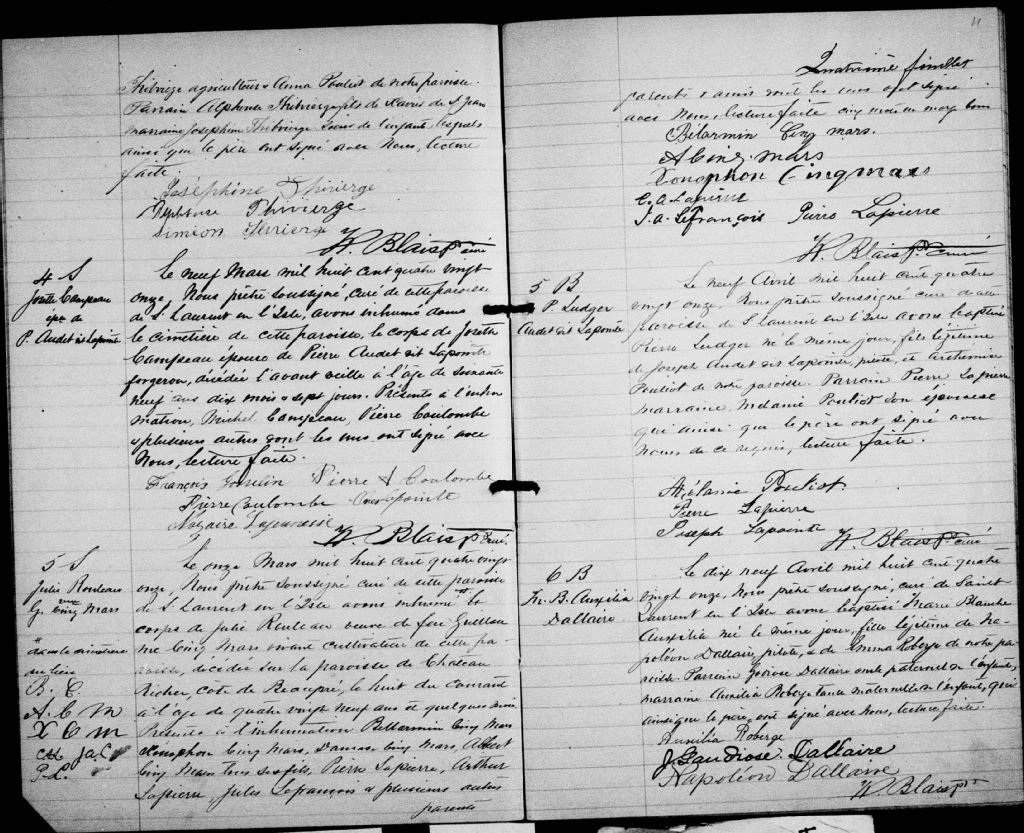 Thivierge agriculteur & Anna Pouliot de notre paroisse.
Parrain Alphonse Thivierge fils de Xavier de St Jean
marraine Josephine Thivierge soeur de l'enfant, lesquels
ainsi que le père ont signé avec Nous, lecture
faite.
Joséphine Thivierge
Alphonse Thivierge
Siméon Thivierge
W. Blais Ptre curé
4 S
Josette Campeau
épse de
P. Audet dit Lapointe
Le neuf Mars mil huit cent quatre vingt
onze, Nous prêtre soussigné, curé de cette paroisse
de St Laurent en l'Isle, avons inhumé dans
le cimetière de cette paroisse, le corps de Josette
Campeau épouse de Pierre Audet dit Lapointe
forgeron, décédée l'avant veille à l'âge de soixante
neuf ans dix mois & sept jours. Présents à l'inhu
mation, Michel Campeau, Pierre Coulombe
& plusieurs autres dont les uns ont signé avec
Nous, lecture faite.
François Gosselin Pierre Coulombe
Pierre Coulombe Lapointe
Nazaire Lajeunesse
W. Blais Ptre curé
5 S
Julie Rouleau
vve
G. Cinq Mars
" dans le cimetière
du lieu
B. C.
A. C. M
X C m
J.a.L.
P. L.
Le onze Mars mil huit cent quatre vingt
onze, Nous prêtre soussigné curé de cette paroisse
de St Laurent en l'Isle avons inhumé " le
corps de Julie Rouleau veuve de feu Guillau
me Cinq Mars vivant cultivateur de cette pa-
roisse, décédée sur la paroisse de Chateau
Richer, côte de Beaupré, le huit du courant
à l'âge de quatre vingt neuf ans et quelques mois
Présents à l'inhumation Bellarmin Cinq Mars
Xenophon Cinq Mars, Damase Cinq Mars, Albert
Cinq Mars tous ses fils, Pierre Lapierre, Arthur
Lapierre, Jules Lefrançois & plusieurs autres
parents
11
Quatrième feuillet
parents & amis dont les uns ont signé
avec Nous, lecture faite cinq mots en marge bons
Bélarmin Cinq mars.
A Cinq-mars
Xenophon Cinqmars
C. A. Lapierre
J. a. Lefrançois Pierre Lapierre
W. Blais Ptre curé
5 B
P. Ludger
Audet dit Lapointe
Le neuf Avril mil huit cent quatre
vingt onze, Nous prêtre soussigné curé de cette
paroisse de St Laurent en l'Isle avons baptisé
Pierre Ludger né le même jour, fils légitime
de Joseph Audet dit Lapointe, pilote, et Arthémise
Pouliot de notre paroisse. Parrain Pierre Lapierre
marraine, Mélanie Pouliot son épouse
qui ainsi que le père ont signé avec
Nous de ce requis, lecture faite.
Mélanie Pouliot.
Pierre Lapierre
Joseph Lapointe
W. Blais Ptre curé
6 B
M. B. Auxilia
Dallaire
Le dix neuf Avril mil huit cent quatre
vingt onze, Nous prêtre soussigné, curé de Saint
Laurent en l'Isle avons baptisé Marie Blanche
Auxilia née le même jour, fille légitime de Na-
poléon Dallaire, pilote, & de Emma Roberge de notre pa-
roisse. Parrain Dallaire oncle paternel de l'enfant,
marraine Auxilia Roberge tante maternelle de l'enfant, qui
ainsi que le père, ont signé avec Nous, lecture faite.
Auxilia Roberge
J. Gaudiose Dallaire
Napoléon Dallaire
W. Blais Ptre